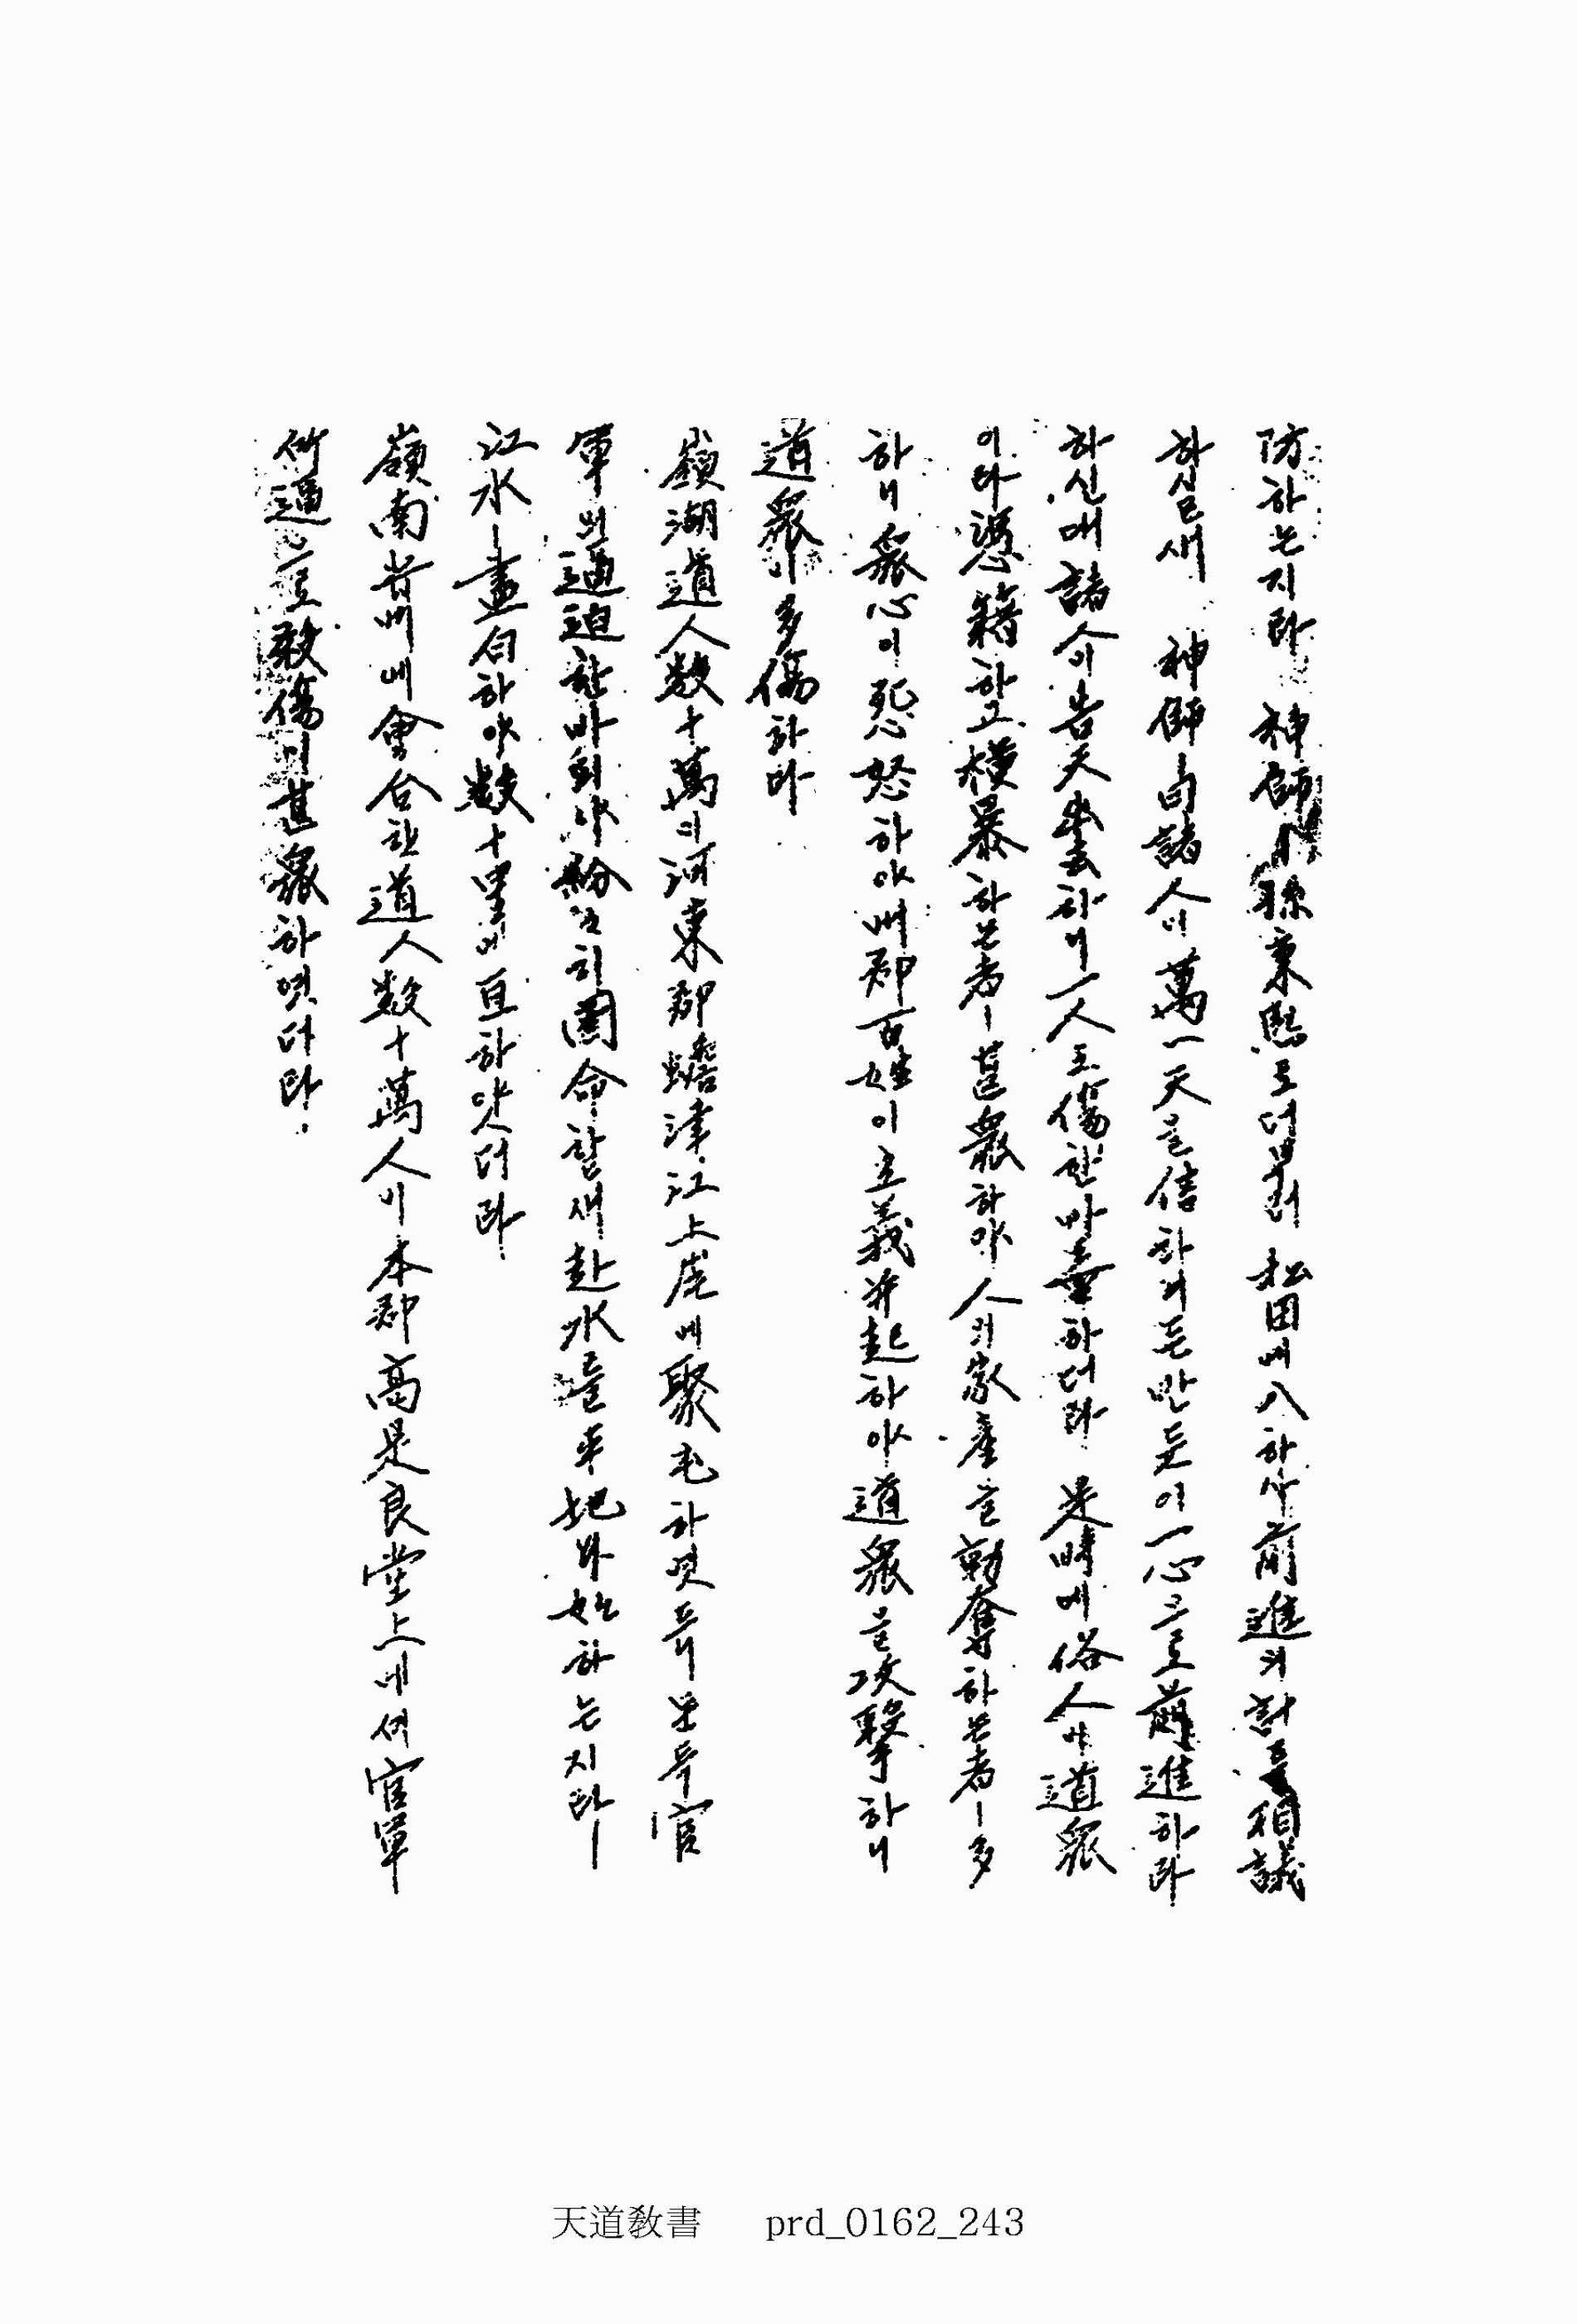 防하는지라 神師ㅣ 孫秉熙로더부러 松田에入하사前進의計를相議
하실새 神師ㅣ曰諸人이萬一天을信하거든반듯이一心으로前進하라
하신대諸人이告天出去하니一人도傷한바毫無하더라 是時에俗人이道衆
이라憑籍하고橫暴하는者ㅣ甚衆하야人의家產을勒奪하는者ㅣ多
하니衆心이怨怒하야每郡百姓이主義并起하야道衆을攻擊하니
道衆이多傷하다
嶺湖道人數十萬이河東郡蟾津江上岸에聚屯하엿든니모두官
軍의逼迫한바되야紛紛히圖命할새赴水를平地와如히하는지라
江水ㅣ盡白하야數十里에亘하얏더라
嶺南各地에會合한道人數十萬人이本郡高是良堂上에셔官軍
所逼으로殺傷이甚衆하엿다라
天道敎書 prd_0162_243